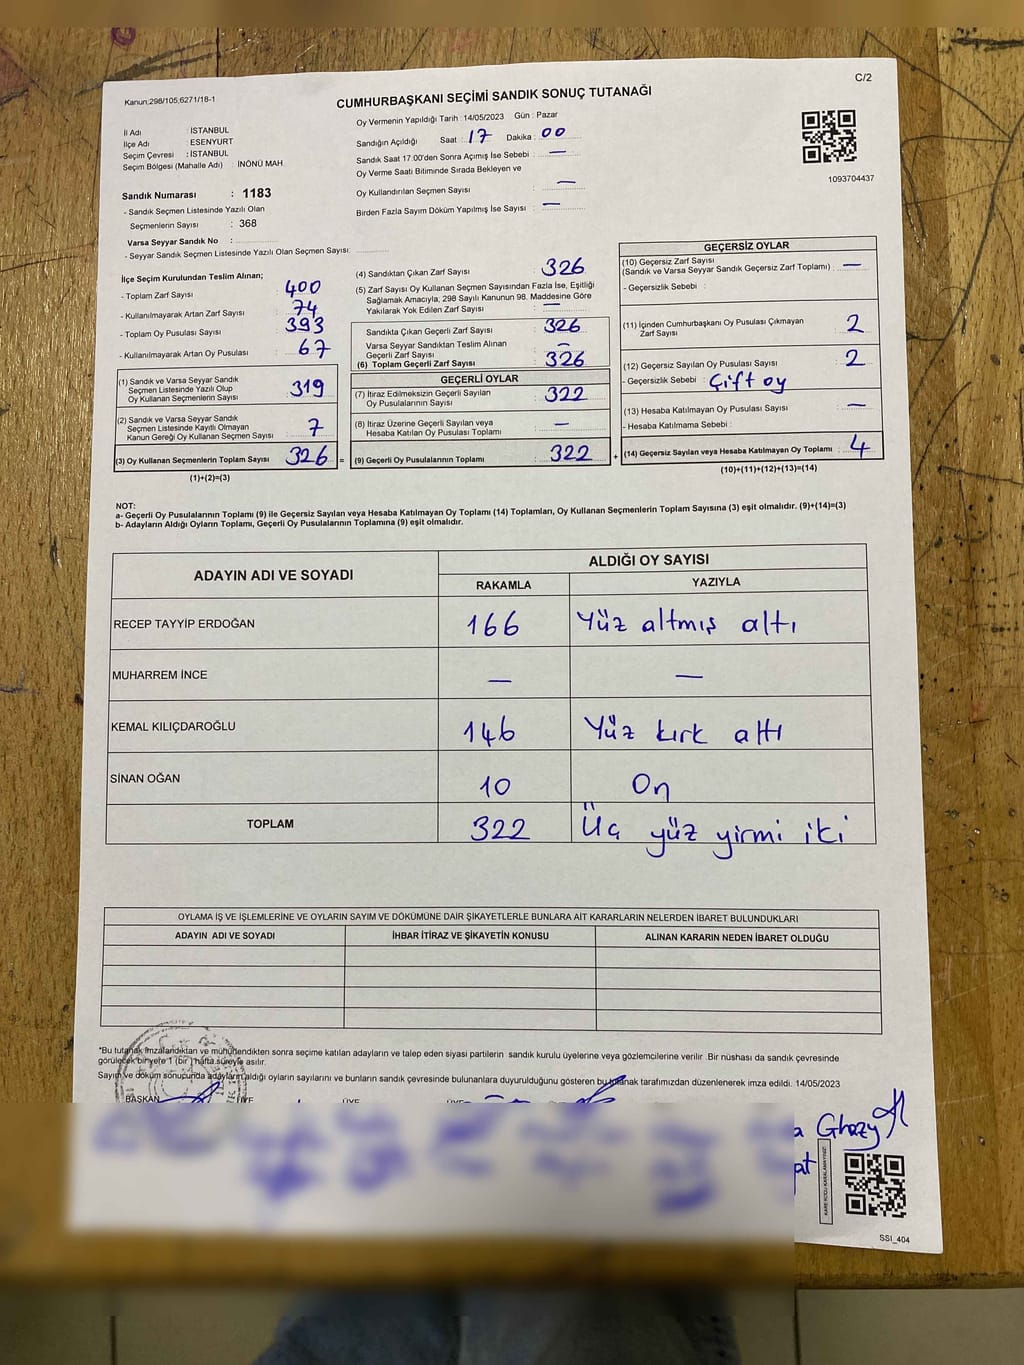 C/2
Kanun;298/105,6271/18-1
CUMHURBAŞKANI SEÇİMİ SANDIK SONUÇ TUTANAĞI
İl Adı : İSTANBUL
İlçe Adı : ESENYURT
Seçim Çevresi : İSTANBUL
Seçim Bölgesi (Mahalle Adı) : İNÖNÜ MAH
Sandık Numarası : 1183
- Sandık Seçmen Listesinde Yazılı Olan
Seçmenlerin Sayısı : 368
Varsa Seyyar Sandık No :
- Seyyar Sandık Seçmen Listesinde Yazılı Olan Seçmen Sayısı:
Oy Vermenin Yapıldığı Tarih : 14/05/2023 Gün : Pazar
Sandığın Açıldığı Saat : 17 Dakika : 00
Sandık Saat 17.00'den Sonra Açımış İse Sebebi : —
Oy Verme Saati Bitiminde Sırada Bekleyen ve
Oy Kullandırılan Seçmen Sayısı : —
Birden Fazla Sayım Döküm Yapılmış İse Sayısı : —
1093704437
İlçe Seçim Kurulundan Teslim Alınan;
- Toplam Zarf Sayısı : 400
- Kullanılmayarak Artan Zarf Sayısı : 74
- Toplam Oy Pusulası Sayısı : 393
- Kullanılmayarak Artan Oy Pusulası : 67
(1) Sandık ve Varsa Seyyar Sandık
Seçmen Listesinde Yazılı Olup
Oy Kullanan Seçmenlerin Sayısı : 319
(2) Sandık ve Varsa Seyyar Sandık
Seçmen Listesinde Kayıtlı Olmayan
Kanun Gereği Oy Kullanan Seçmen Sayısı : 7
(3) Oy Kullanan Seçmenlerin Toplam Sayısı : 326 =
(1)+(2)=(3)
(4) Sandıktan Çıkan Zarf Sayısı : 326
(5) Zarf Sayısı Oy Kullanan Seçmen Sayısından Fazla İse, Eşitliği
Sağlamak Amacıyla, 298 Sayılı Kanunun 98. Maddesine Göre
Yakılarak Yok Edilen Zarf Sayısı : —
Sandıkta Çıkan Geçerli Zarf Sayısı : 326
Varsa Seyyar Sandıktan Teslim Alınan
Geçerli Zarf Sayısı : —
(6) Toplam Geçerli Zarf Sayısı : 326
GEÇERLİ OYLAR
(7) İtiraz Edilmeksizin Geçerli Sayılan
Oy Pusulalarının Sayısı : 322
(8) İtiraz Üzerine Geçerli Sayılan veya
Hesaba Katılan Oy Pusulası Toplamı : —
(9) Geçerli Oy Pusulalarının Toplamı : 322 +
GEÇERSİZ OYLAR
(10) Geçersiz Zarf Sayısı
(Sandık ve Varsa Seyyar Sandık Geçersiz Zarf Toplamı) : —
- Geçersizlik Sebebi :
(11) İçinden Cumhurbaşkanı Oy Pusulası Çıkmayan
Zarf Sayısı : 2
(12) Geçersiz Sayılan Oy Pusulası Sayısı : 2
- Geçersizlik Sebebi : Çift oy
(13) Hesaba Katılmayan Oy Pusulası Sayısı : —
- Hesaba Katılmama Sebebi :
(14) Geçersiz Sayılan veya Hesaba Katılmayan Oy Toplamı : 4
(10)+(11)+(12)+(13)=(14)
NOT:
a- Geçerli Oy Pusulalarının Toplamı (9) ile Geçersiz Sayılan veya Hesaba Katılmayan Oy Toplamı (14) Toplamları, Oy Kullanan Seçmenlerin Toplam Sayısına (3) eşit olmalıdır. (9)+(14)=(3)
b- Adayların Aldığı Oyların Toplamı, Geçerli Oy Pusulalarının Toplamına (9) eşit olmalıdır.
ADAYIN ADI VE SOYADI ALDIĞI OY SAYISI
RAKAMLA YAZIYLA
RECEP TAYYİP ERDOĞAN 166 Yüz altmış altı
MUHARREM İNCE — —
KEMAL KILIÇDAROĞLU 146 Yüz kırk altı
SİNAN OĞAN 10 On
TOPLAM 322 Üç yüz yirmi iki
OYLAMA İŞ VE İŞLEMLERİNE VE OYLARIN SAYIM VE DÖKÜMÜNE DAİR ŞİKAYETLERLE BUNLARA AİT KARARLARIN NELERDEN İBARET BULUNDUKLARI
ADAYIN ADI VE SOYADI İHBAR İTİRAZ VE ŞİKAYETİN KONUSU ALINAN KARARIN NEDEN İBARET OLDUĞU
*Bu tutanak imzalandıktan ve mühürlendikten sonra seçime katılan adayların ve talep eden siyasi partilerin sandık kurulu üyelerine veya gözlemcilerine verilir .Bir nüshası da sandık çevresinde
görülecek bir yere 1 (bir ) hafta süreyle asılır.
Sayım ve döküm sonupunda adayların aldığı oyların sayılarını ve bunların sandık çevresinde bulunanlara duyurulduğunu gösteren bu tutanak tarafımızdan düzenlenerek imza edildi. 14/05/2023
BAŞKAN ÜYE ÜYE ÜYE
a Ghazy
pat
KARE KODU KARALAMAYINIZ
SSI_404